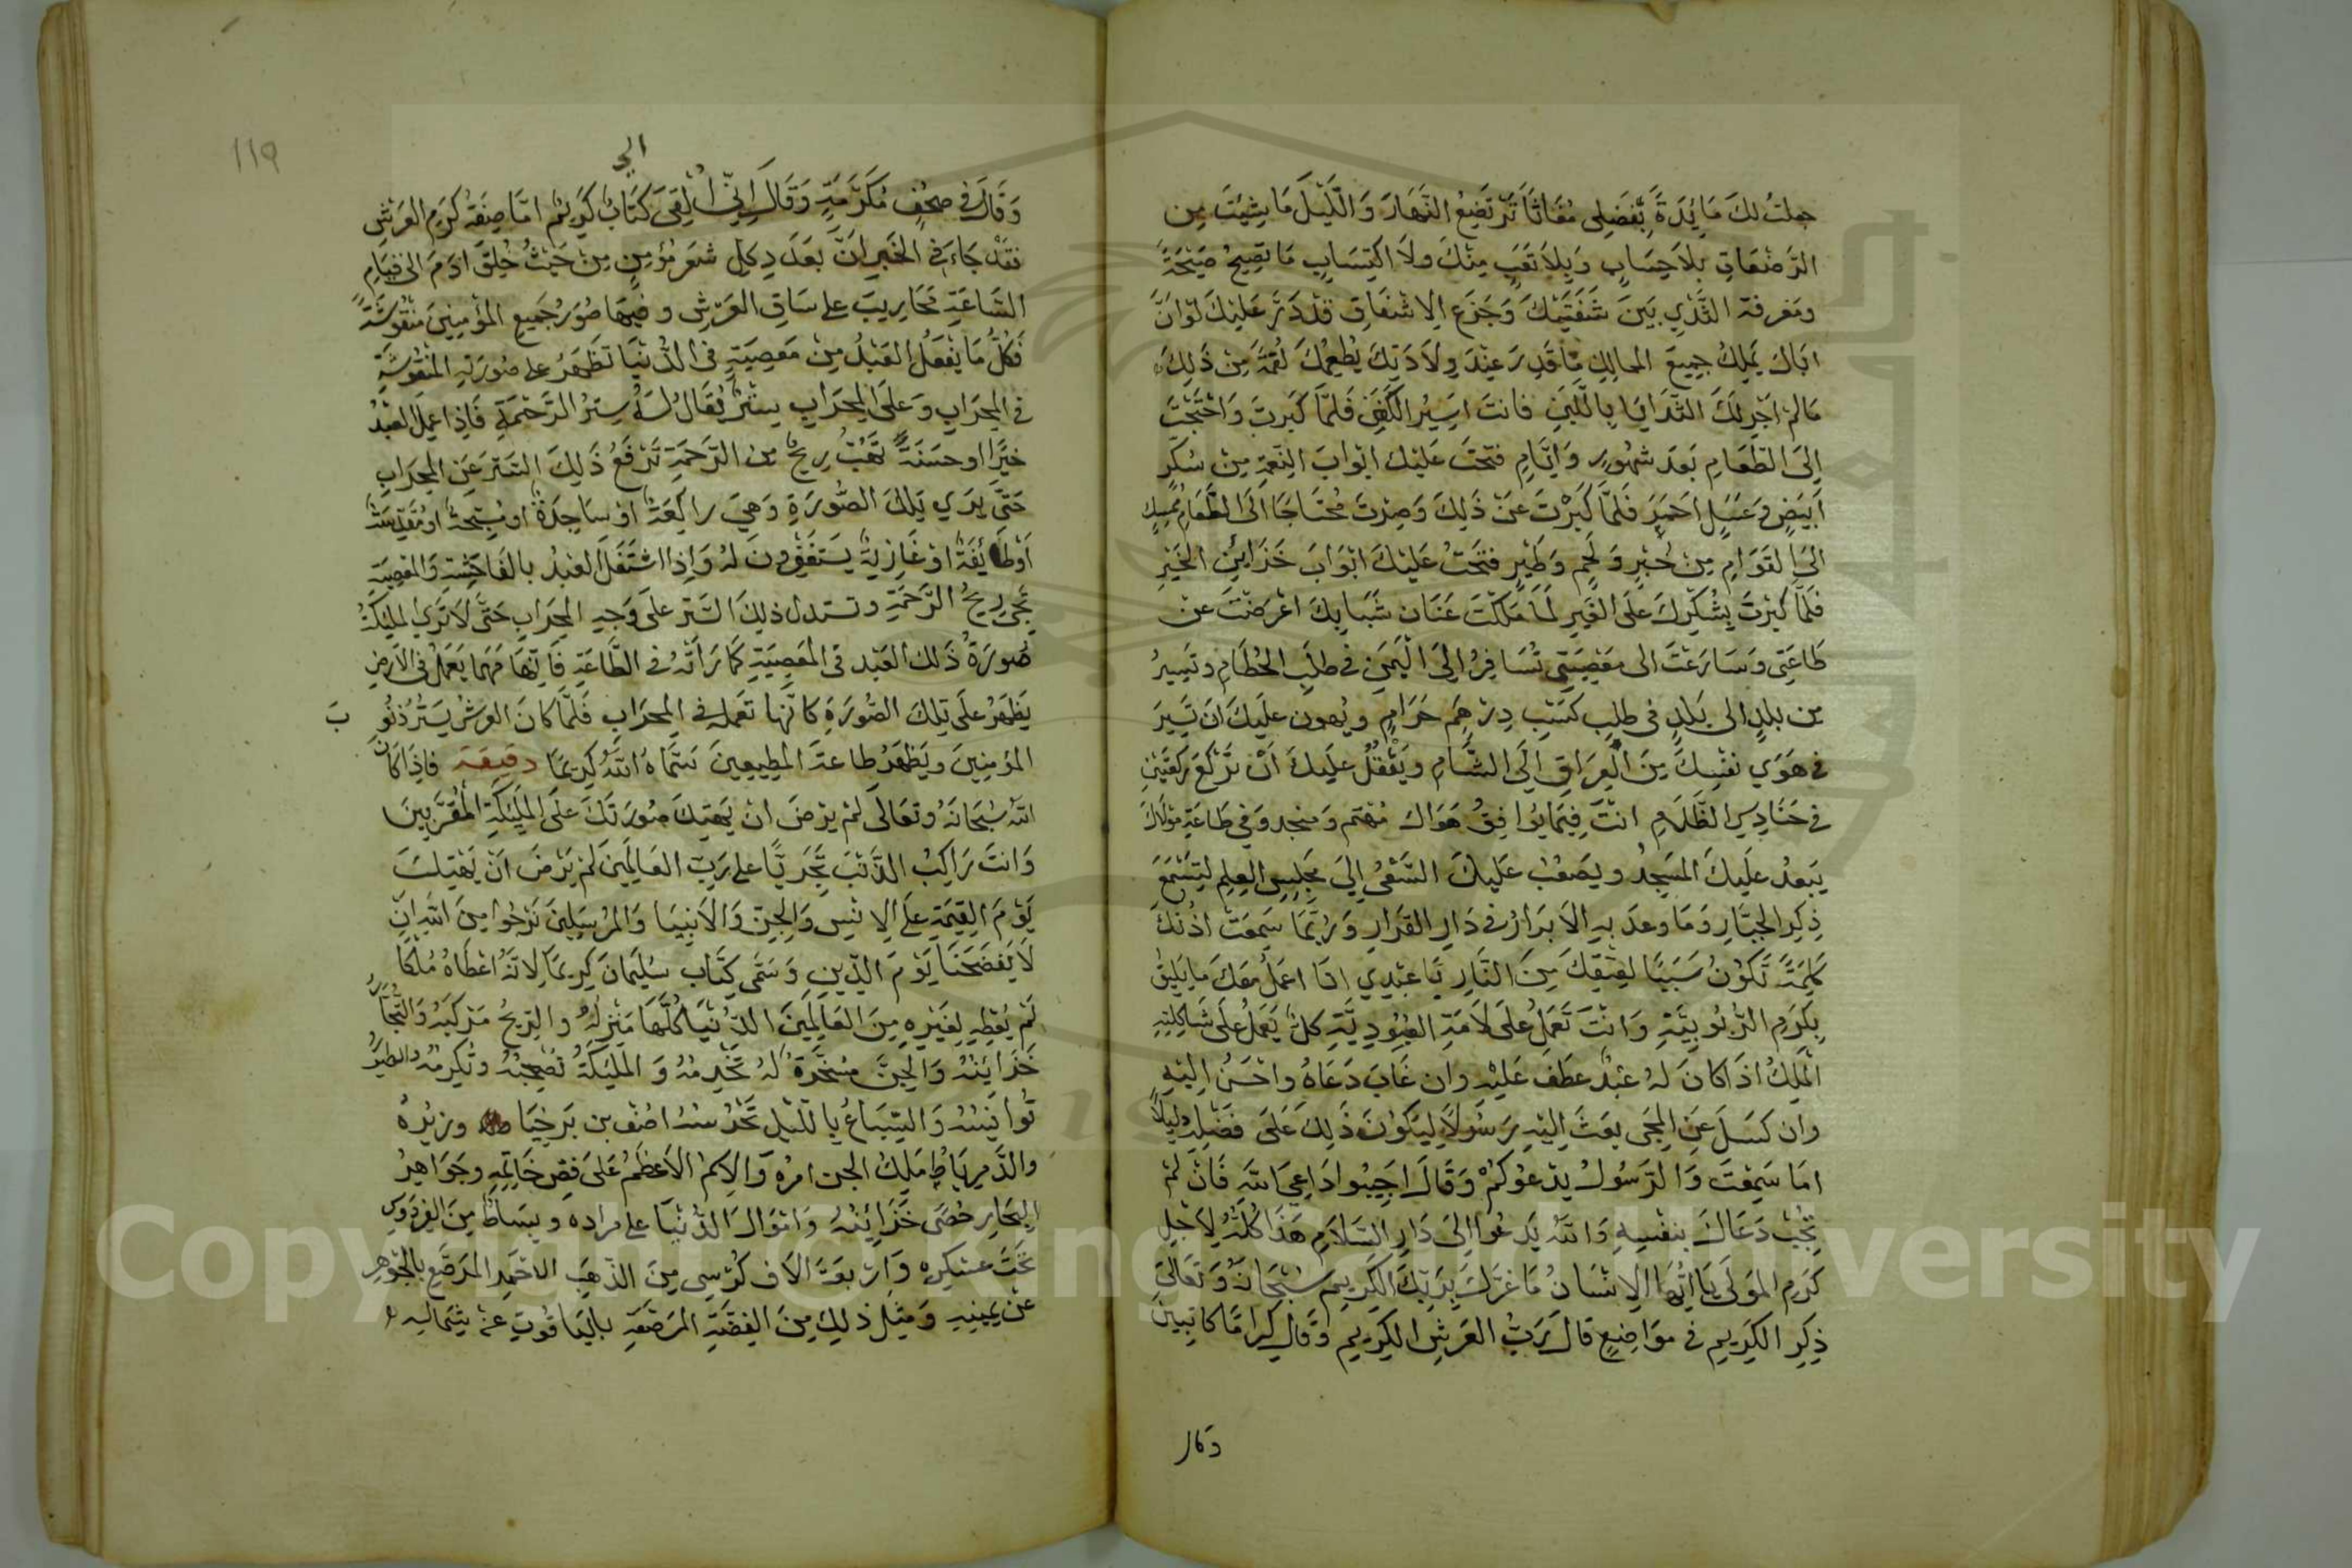 جعلتُ لكَ مَائِدَةً بِفَضلِى مُغَاثًا تَرْتَضِعُ النَّهَارَ وَاللَّيْلَ مَا شِيتَ مِن
الرَّضْعَاتِ بِلاَ حِسَابٍ وَبِلاَ تَعَبٍ مِنْكَ ولاَ اكتِسَابٍ مَا تَصِيحُ صَيْحَةً
ومَعْرِفة الثَّدْيِ بَينَ شَفَتَيْكَ وَجَزَعِ الاِشفَاقِ قَدْ دَرَّ عَلَيْكَ لوْ اَنَّ
اَبَاكَ يَمْلِكُ جميعَ الممالِكِ مَا قَدِرَ عِنْدَ وِلاَدَتِكَ يُطعِمُكَ لُقمَةً مِنْ ذَلِكَ
مَالم اُجْرِ لَكَ الثَّدَايَا بِاللَّبَنِ فانتَ اَسِيْرُ الكَفَنِ فَلمَّا كَبِرتَ وَاحْتَجْتَ
اِلَى الطَّعَامِ بَعدَ شهُورٍ وَايَّامٍ فتحْتُ عَليْكَ ابْوَابَ النِعَمِ مِنْ سُكَّرٍ
اَبيَضٍ وَعَسَلٍ اَحمَرَ فَلمَّا كَبُرْتَ عَنْ ذَلِكَ وَصِرْتَ مُحتَاجًا اِلَى الطَّعَامِ
الى القَوَامِ مِنْ خُبْزٍ وَلَحمٍ وَطَيْرٍ فتَحْتُ عَلَيْكَ ابْوَابَ خَزَايِنِ الخَيْرِ
فَلمَّا كبُرْتَ بِشُكْرِكَ علَى الغَيرِ لمَا مَلَكْتَ عَنَان شَبَابِكَ اعْرَضْتَ عنْ
طَاعَتِى وَسَارَعْتَ الى مَعْصِيَتِي تُسَافِرُ اِلَى الْيَمَنِ فى طلَبِ الحُطَامِ وتَسِيرُ
مِن بلدٍ الى بَلدٍ فى طلَبِ كَسْبِ دِرْهَمٍ حَرَامٍ ويُهون علَيكَ ان تَسِيرَ
فى هَوَي نَفْسِكَ مِنَ الْعِرَاقِ اِلَى الشَّامِ ويَثْقُلُ علَيكَ اَنْ تَرْكَعَ رَكعَتَيْنِ
فى حَنَادِسِ الظَّلاَمِ انْتَ فِيمَا يُوَافِقُ هَوَاكَ مُهتَم وَمنجد وَفي طَاعَةِ مَوْلاَكَ
يَبعُد عَلَيكَ المسَجِدُ ويَصعُبُ عَليكَ السَّعْىُ اِلَى مَجلِسِ العِلمِ لتِسْمَعَ
ذِكرَ الجبَّارِ وَمَا وعدَ بهِ الاَبرَارُ فى دَارِ القَرَارِ وَرُبَّمَا سَمِعَتْ اذُنُكَ
كَلِمَةً تَكُوْنُ سَبَبًا لعِتْقِكَ مِنَ النَّارِ يَا عَبْدِي انَا اعمَلُ معَكَ مَا يَلِيقُ
بِكَرَمِ الرُّبُوبِيَّةِ وَانتَ تَعمَلُ علَى لاَمَةِ العُبُودِيَّةِ كلٌ يَعمَلُ علَى شَاكِلتِهِ
المَلِكُ اذَا كانَ لهُ عَبْدٌ عطَفَ عَلَيْهِ وان غَابَ دَعَاهُ واحْسَنُ اِليْهِ
وان كَسَلَ عَنِ المِجَى بعَثَ اِليْهِ رَسُولاً لِيَكُوْنَ ذَلِكَ عَلَى فضَلِهِ دَلِيلاً
امَا سَمِعْتَ وَالرَّسُولُ يَدْعُوكُمْ وَقَالَ اَجِيبُوا دَاعِيَ اللهِ فَانْ لمْ
تُجِبْ دَعَاكَ بِنفْسِهِ وَاللهُ يَدعُوا اِلَى دَارِ السَّلاَمِ هَذَا كُلُّهُ لِاَجْلِ
كَرَمِ المَولَى يَا اَيُّهَا الاِنسَانُ مَا غرَّكَ بِرَبِّكَ الكَرِيم سُبْحَانَهُ وَتَعَالَى
ذِكِرِ الكَرِيمِ فى مَوَاضِعٍ قالَ رَبُّ العَرشِ الكَرِيمِ وقَالَ كِرَامًا كاتِبِينَ
وقال
١١٩
الي
وَقَالَ فى صُحُفٍ مُكَرَّمَةٍ وَقَالَ اِنِّى اُلْقِىَ كتَابٌ كَرِيْمٌ امَّا صِفَة كَرَمِ العَرشِ
فقَدْ جَاءَ فى الخَبرِ اَنَّ بعَدَدِ كلِّ شَعرِ مُؤمِنٍ مِنْ حَيثُ خُلِقَ ادَمَ الى قِيَامِ
السَّاعَةِ مَحَارِيبَ على سَاقِ العَرشِ وفيهَا صُوَر جَمِيعِ المؤمِنِينَ مَنْقُوشَةً
فَكُلُّ مَا يَفْعَلُ العَبْدُ مِنْ مَعصِيَةٍ فى الدُّنيَا تَظهَرُ على صُورَتهِ المَنْقُوشَةِ
فى المِحرَابِ وَعلَى المِحرَابِ سِتْرٌ يُقَالُ لهُ سِترُ الرَّحْمَةِ فَاِذَا عَمِلَ العَبْدُ
خيْرًا او حسَنَةً تَهُبُّ رِيحٌ من الرَّحمَةِ تَرْفَعُ ذَلِكَ السِّتر عَنِ المِحرَابِ
حَتَّى يَرَي تِلكَ الصُّورَةِ وَهِيَ راكِعَةٌ اوْ سَاجِدَةٌ او مُسَبِّحةٌ او مُقَدِّسَةٌ
اَوْ طَائِفَةٌ اوْ غَازِيةٌ يَستَغفِرُونَ لهُ وَاِذا اشتَغَلَ العَبْدُ بالفَاحِشَةِ وَالمَعْصِيَةِ
تَجِى رِيحُ الرَّحمَةِ وتسدل ذَلِكَ السِّتر علَى وَجهِ المِحرَابِ حَتَّى لاَ تَرَي المَلَيِكَةُ
صُورَةَ ذَلك العَبْد فى المَعصِيَةِ كمَا رَاَتْهُ فى الطَّاعَةِ فَاِنَّهَا مَهمَا يَعمَلُ فى الاَرضِ
يَظهَرُ علَى تِلكَ الصُّورَةِ كانَّهَا تَعمله فى المِحرَابِ فَلمَّا كانَ العَرشُ يَسْتُر ذُنُو
بَ
المؤمِنِينَ ويَظهَرُ طاعةَ المطِيعِينَ سَمَّاهُ اللهُ كَرِيمًا دقيقة فاِذَا كانَ
اللهُ سُبْحَانَهُ وتعَالَى لمْ يَرْضَ انْ يَهتِكَ صُورَتَكَ علَى المَلَيِكَةِ المُقَرَّبِينَ
وَانتَ رَاكِبُ الذَّنْبَ تَجَرِّيًا على رَبِّ العَالَمِينَ لمْ يَرْضَ اَنْ يَهْتِكَ
يَوْمَ القِيمَةِ علَى الاِنْسِ وَالجِنِّ وَالاَنبِيَا وَالمُرْسَلِينَ نَرْجُوا مِنَ اللهِ انْ
لاَ يَفضَحَنَا يَوْمَ الدِّينِ وَسَمَّى كِتَابَ سُلَيمَانَ كرِيمًا لِانَّهُ اعْطَاهُ مُلكًا
لمْ يُعْطِهِ لغَيْرِهِ مِنَ العَالَمِينَ الدُّنْيَا كُلُّهَا مَنْزِلُهُ والرِّيحُ مَرْكَبُهُ وَالبِحَارُ
خَزَايَنُهُ وَالجِنَّ مُسَخَّرَةٌ لهُ تَخْدِمُهُ وَالمَلَيِكَةُ تَصْحَبُهُ وتُكرِمُهُ والطيْرُ
تُوانِسُهُ وَالسِّبَاعُ بِاللَّيْلِ تَحْرُسُهُ اصَف بن بَرخِيَا وزيْرُهُ
والدَّمِرياط مَلِكُ الجن امرُه وَالاِسمُ الاَعظَمُ علَى فَصِّ خَاتِمِهِ وجَوَاهِرُ
البِحَارِ حَصَى خَزَائِنُهُ وَامْوَالُ الدُّنْيَا على مراده وبِسَاطٌ مِنَ الفِردَوْسِ
تَحْتَ عسْكرِهِ وَاربعَة الاَف كُرْسِى مِنَ الذَّهَبِ الاَحْمَرِ المُرَصَّعِ بالجَوْهَرِ
عَنْ يَمِينِهِ وَمِثْل ذَلِكَ مِنَ الفِضَّةِ المُرَصَّعَةِ باليَاقُوتِ عنْ شِمَالِهِ
Copyright © King Saud University